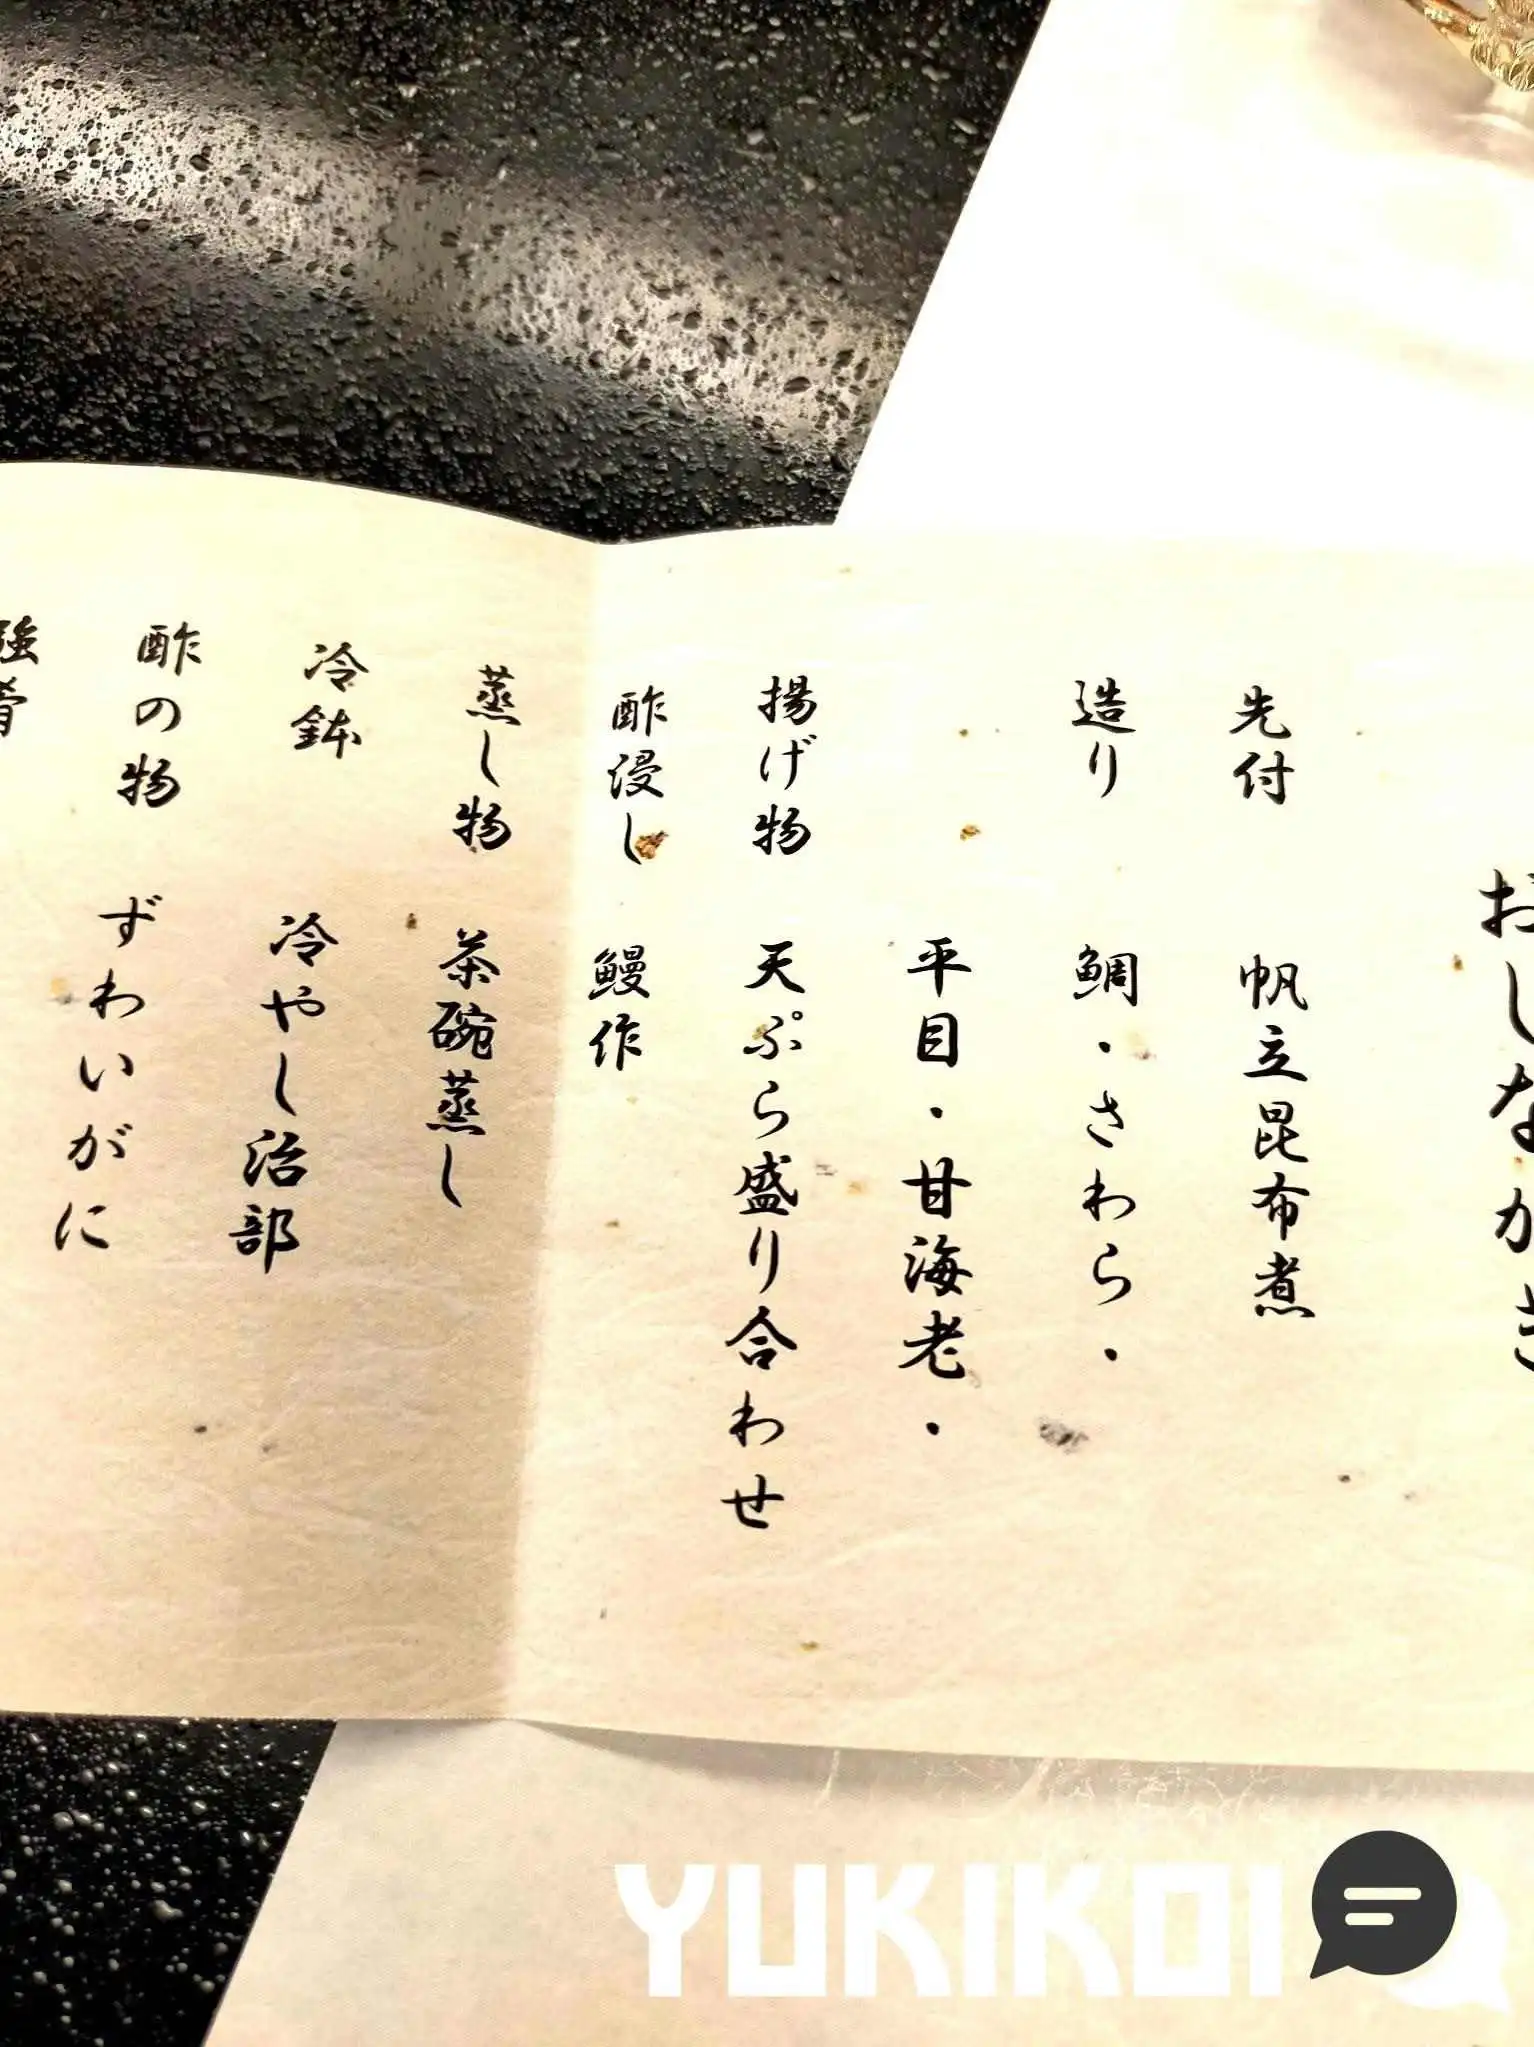 おしながき
先付 帆立昆布煮
造り 鯛・さわら・
平目・甘海老・
揚げ物 天ぷら盛り合わせ
酢浸し 鰻作
蒸し物 茶碗蒸し
冷鉢 冷やし治部
酢の物 ずわいがに
強肴
YUKIKOI